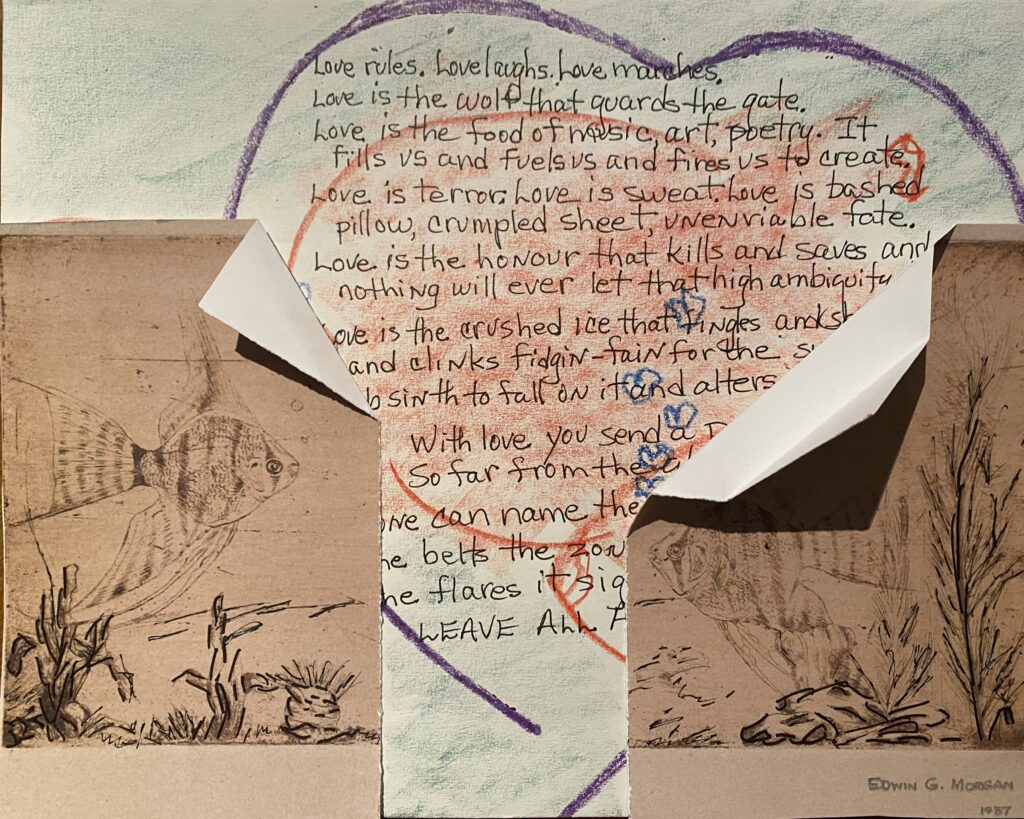 Love rules. Love laughs. Love marches.
Love is the wolf that guards the gate.
Love is the food of music, art, poetry. It
fills us and fuels us and fires us to create.
Love is terror. Love is sweat. Love is bashed
pillow, crumpled sheet, unenviable fate.
Love is the honour that kills and saves and
nothing will ever let that high ambiguity
ove is the crushed ice that tinges and
and clinks fidgin-fain for the s
b sinth to fall on it and alters
With love you send a
So far from the
ne can name the
he belts the zon
he flares it sig
LEAVE ALL
EDWIN G. MORGAN
1937